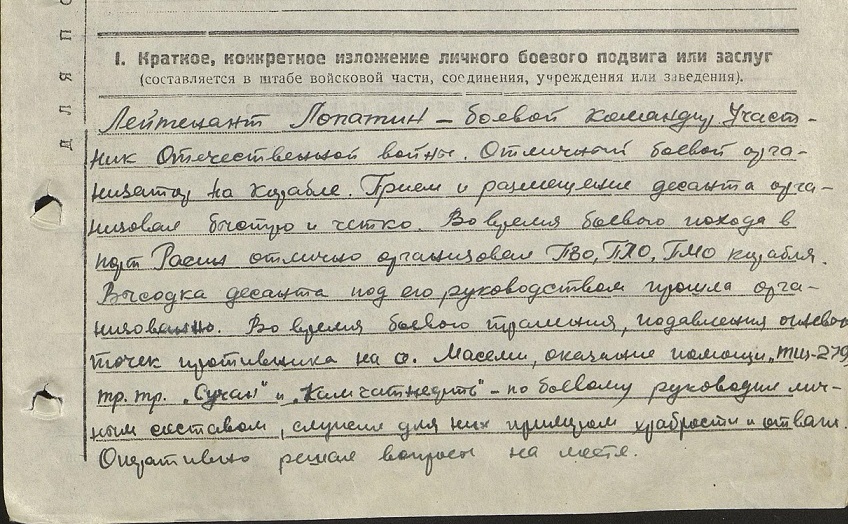 для по
I. Краткое, конкретное изложение личного боевого подвига или заслуг
(составляется в штабе войсковой части, соединения, учреждения или заведения).
Лейтенант Лопатин – боевой командир. Участ-
ник Отечественной войны. Отличный боевой орга-
низатор на корабле. Прием и размещение десанта орга-
низовал быстро и четко. Во время боевого похода в
порт Расин отлично организовал ПВО, ПЛО, ПМО корабля.
Высадка десанта под его руководством прошла орга-
низованно. Во время боевого траления, подавления огневых
точек противника на о. Масеми, оказание помощи „тщ-279,
тр. тр. „Сучан" и „Камчатнефть" – по боевому руководил лич-
ным составом, служил для них примером храбрости и отваги.
Оперативно решал вопросы на месте.